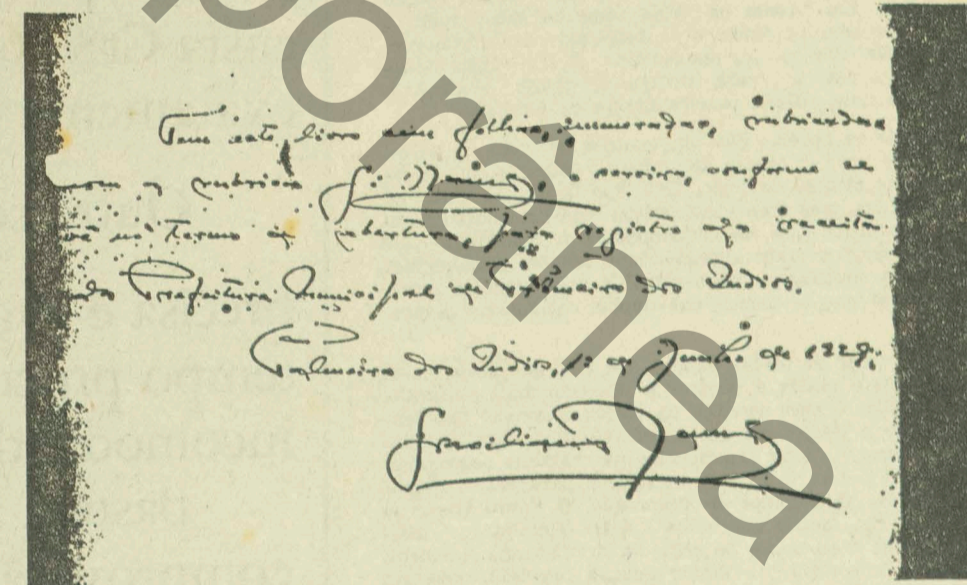 Tem este livro cem folhas, numeradas, rubricadas
com a rubrica G. Ramos, e servirá, conforme se
no termo de abertura, para registro da receita
da Prefeitura Municipal de Palmeira dos Indios.
Palmeira dos Indios, 1º de Junho de 1928.
Graciliano Ramos
porânea